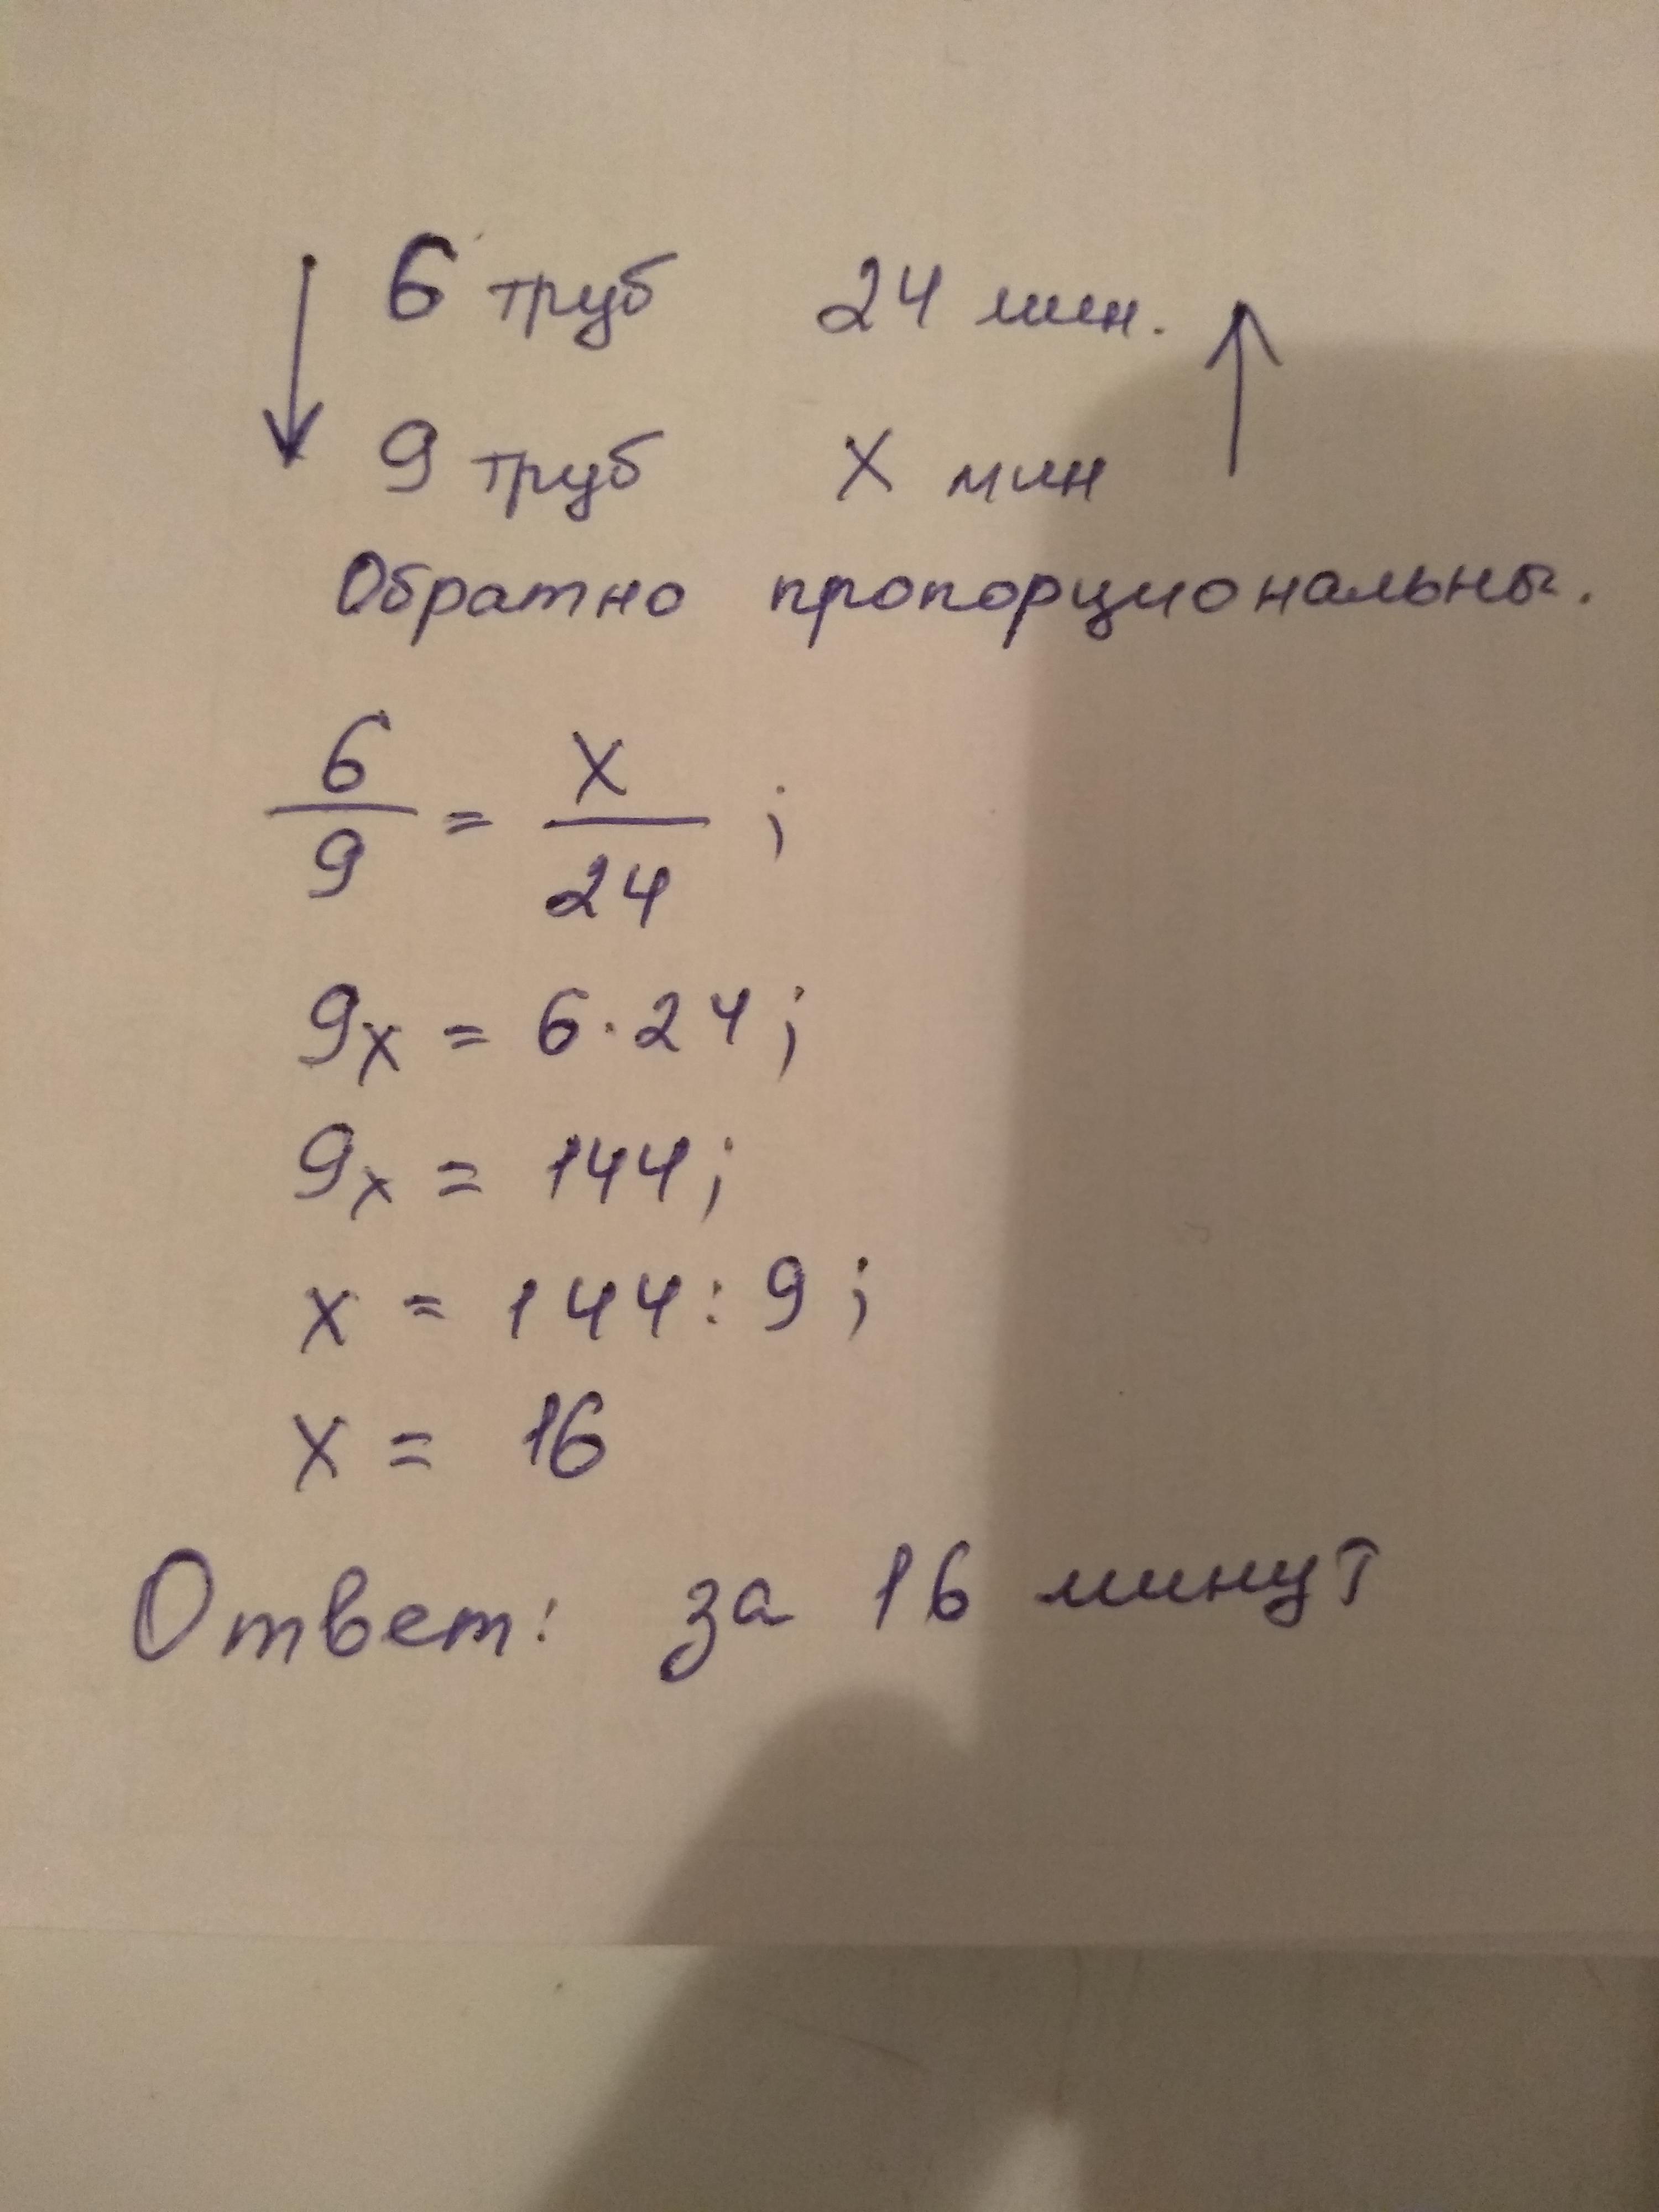 6 труб 24 мин.
9 труб x мин
Обратно пропорциональны.
6/9 = x/24 ;
9x = 6·24;
9x = 144;
x = 144:9;
x = 16
Ответ: за 16 минут